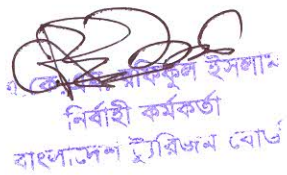 এ, কে, এম, রফিকুল ইসলাম
নির্বাহী কর্মকর্তা
বাংলাদেশ ট্যুরিজম বোর্ড